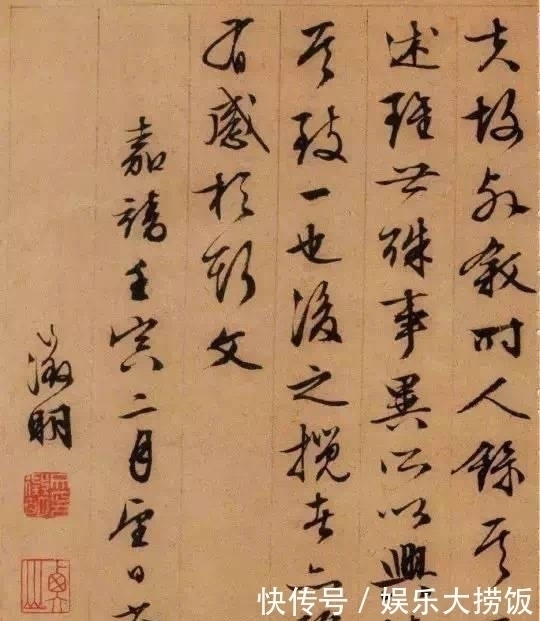 夫故列敘時人錄其
述雖世殊事異所以興
其致一也後之攬者亦
有感於斯文
嘉靖壬寅二月望日
徵明
快传号 / 娱乐大捞饭